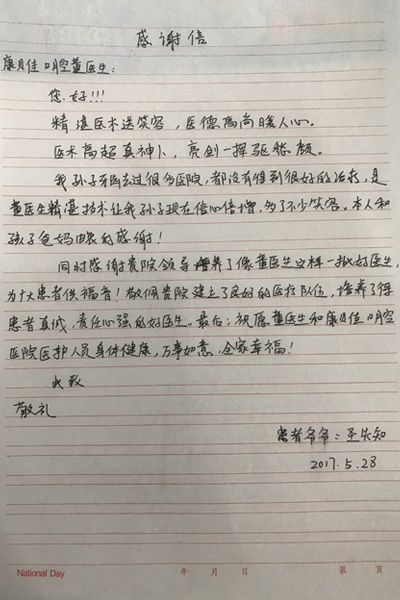 感谢信
康贝佳口腔董医生:
您好!!!
精湛医术送笑容,医德高尚暖人心。
医术高超真神卜,亮剑一挥驱愁颜。
我孙子牙齿去过很多医院,都没有得到很好的治疗,是
董医生精湛技术让我孙子现在信心倍增,多了不少笑容。本人和
孩子爸妈由衷的感谢!
同时感谢贵院领导培养了像董医生这样一批好医生,
为广大患者供福音!敬佩贵院建立了良好的医疗队伍,培养了待
患者真诚,责任心强的好医生。最后:祝愿董医生和康贝佳口腔
医院医护人员身体健康,万事如意,全家幸福!
此致
敬礼
患者爷爷:
2017.5.28
National Day 年 月 日 第 页